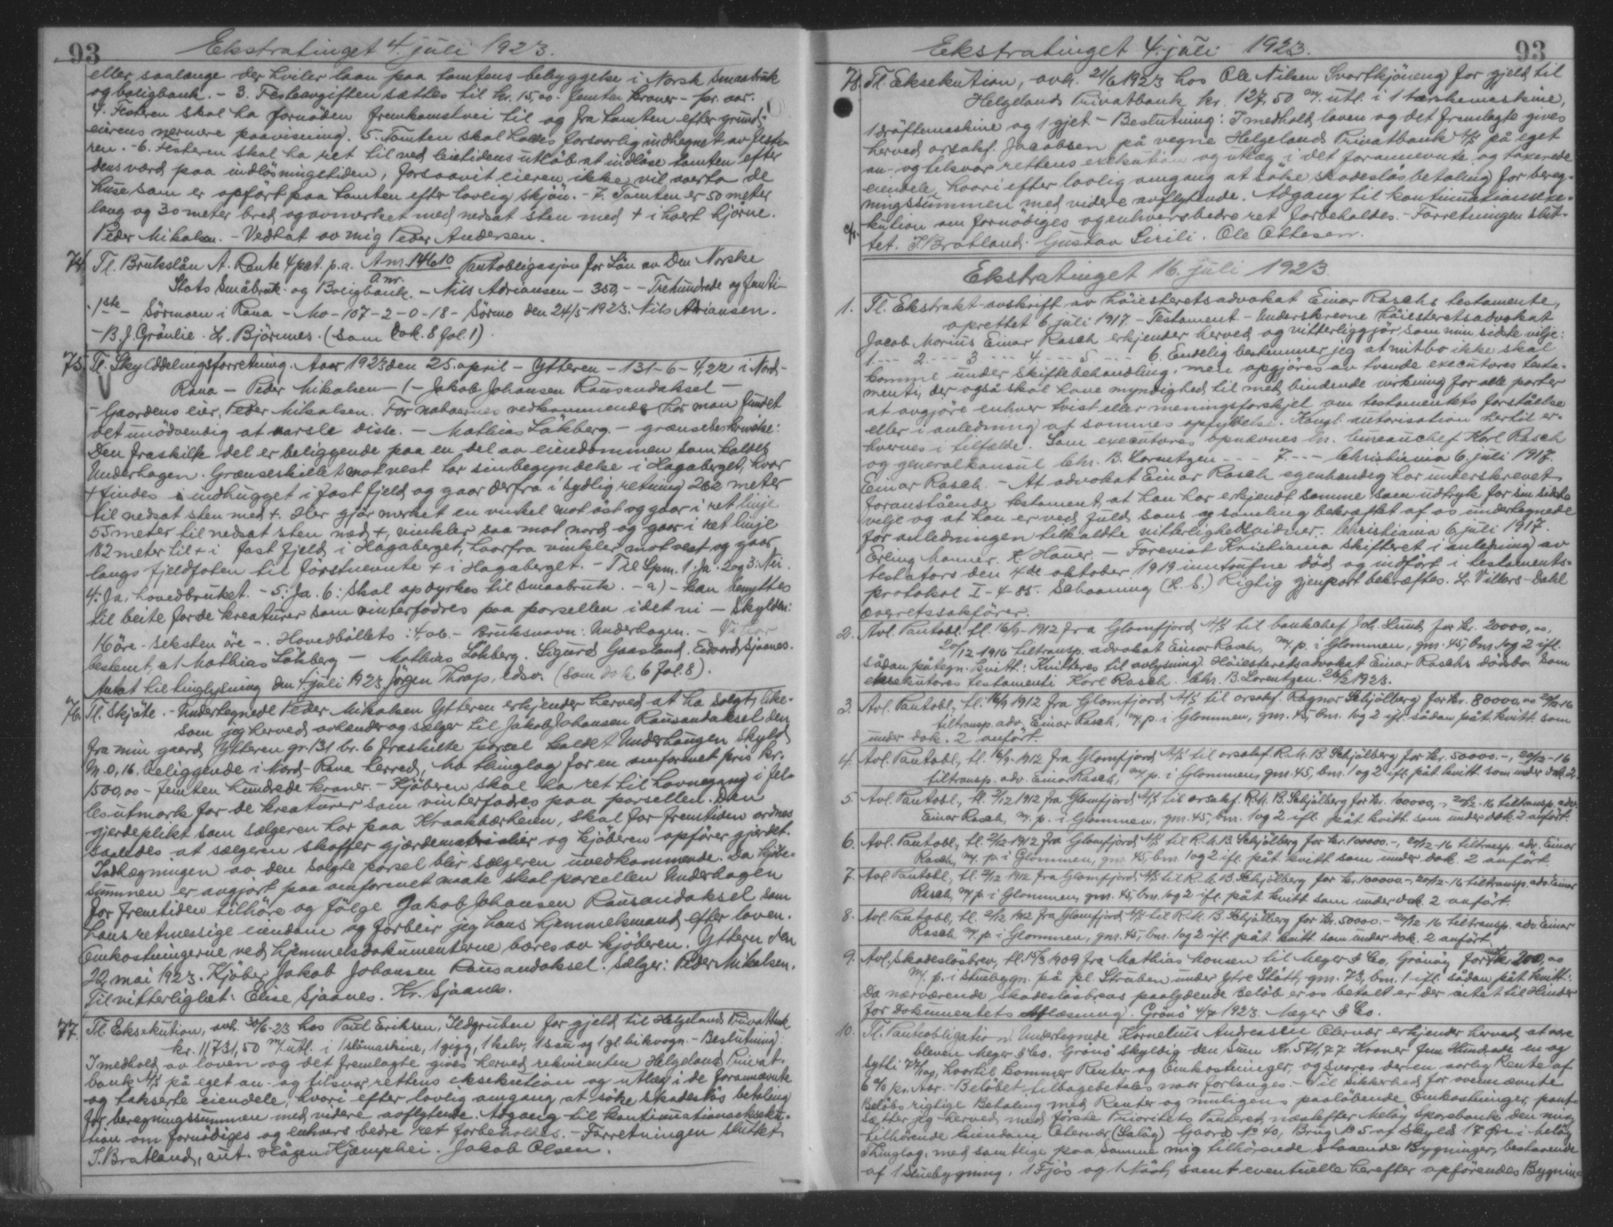 93
Ekstratinget 4. juli 1923.
eller saalange der hviler laan paa tomtens bebyggelse i Norsk Smaabruk
og boligbank. - 3. Festeavgiften sættes til kr. 15,00 femten kroner - pr. aar.
4. Festeren skal ha fornøden fremkomstvei til og fra tomten efter grund-
eierens nærmere paavisning. 5. Tomten skal holdes forsvarlig indhegnet av feste-
ren. - 6. Festeren skal ha ret til ved leietidens utløb at indløse tomten efter
dens værd paa indløsningstiden, forsaavidt eieren ikke vil overta de
huse som er opført paa tomten efter lovlig skjøn. - 7. Tomten er 50 meter
lang og 30 meter bred og avmerket med nedsat sten med + i hvert hjørne.
Peder Mikalsen. - Vedtat av mig Peder Andersen.
74. Tl. Brukslån A. Rente 4 pct. p.a. Am 14610 Pantobligasjon for Lån av Den Norske
Stats Småbruk- og Boligbank. - Nils Adriansen - 350 - Trehundrede og femti-
1ste - Sörmoen i Rana - Mo - 107 - 2 - 0 - 18 - Sørmo den 24/5 - 1923. Nils Adriansen.
- B. J. Grønlie. L. Björnnes. (Som dok. 8 fol. 1).
75. Tl. Skylddelingsforretning. Aar 1923 den 25. april - Ytteren - 131 - 6 - 4,22 i Nord-
Rana - Peder Mikalsen - 1 - Jakob Johansen Rausandaksel -
- Gaardens eier, Peder Mikalsen. For naboernes vedkommende har man fundet
det unödvendig at varsle disse. - Mathias Løkberg. - grænsebeskrivelse:
Den fraskilte del er beliggende paa en del av eiendommen som kaldes
Underhagen. Grænseskiellet mot vest tar sin begyndelse i Hagaberget, hvor
+ findes indhugget i fast fjeld og gaar derfra i sydlig retning 262 meter
til nedsat sten med +. Her gjör merket en vinkel mot øst og gaar i ret linje
55 meter til nedsat sten med +, vinkler saa mot nord og gaar i ret linje
182 meter til + i fast fjeld i Hagaberget, hvorfra vinkler mot vest og gaar
langs fjeldfoten til förstnevnte + i Hagaberget. - Til Spm. 1. Ja. 2 og 3: Nei.
4. Ja, hovedbruket. - 5: Ja. 6: Skal opdyrkes til smaabruk. - a) - kan benyttes
til beite for de kreaturer som vinterfödres paa parsellen i det ni - Skylden:
16 öre - seksten öre -. Hovedböllets: 4,06 - Bruksnavn: Underhagen. -
bestemt, at Mathias Løkberg - Mathias Løkberg. Sigurd Gaasland. Edvard Sjaanes.
Antat til tinglysning den 4. juli 1923 Jörgen Thrap, edsv. (Som dok. 6 fol. 8).
76. Tl. Skjöte. - Undertegnede Peder Mikalsen Ytteren erkjender herved at ha solgt, like-
som jeg herved avhender og sælger til Jakob Johansen Rausandaksel den
fra min gaard Ytteren gr. 131 br. 6 fraskilte parsel kaldet Underhaugen skyld
m. 0,16. Beliggende i Nord-Rana herred, Mo thinglag for en omforenet pris kr.
1500,00 - femten hundrede kroner. - Kjöberen skal ha ret til havnegang i fel-
lesutmark for de kreaturer som vinterfödres paa parsellen. Den
gjerdeplikt som sælgeren har paa Kraakbærheien, skal for fremtiden ordnes
saaledes at sælgeren skaffer gjærdematerialier og kjøberen opfører gjærdet.
Indhegningen av den solgte parsel blir sælgeren uvedkommende. Da kjøbe-
summen er avgjort paa omforenet maate skal parcellen Underhagen
for fremtiden tilhöre og følge Jakob Johansen Rausandaksel som
hans retmessige eiendom og forblir jeg hans hjemmelsmand efter loven.
Omkostningerne ved hjemmelsdokumenterne bæres av kjøberen. Yttern den
22 mai 1923. Kjøber Jakob Johansen Rausandaksel. Sælger: Peder Mikalsen.
Til vitterlighet: Elise Sjaanes. Kr. Sjaanes.
77. Tl. Eksekution, avh. 30/6-23 hos Paul Eriksen, Ildgruben for gjeld til Helgelands Privatbank
kr. 11731,50 m/utl. i 1 slåmaskine, 1 gigg, 1 kalv, 1 sau og 1 gl. bikvogn. - Bestutning
I medhold av loven og det fremlagte gives herved rekvirenten Helgelands Privat-
bank A/S på eget an- og tilsvar rettens eksekution og utlæg i de forannævnte
og takserte eiendele, hvori efter lovlig omgang at söke skadeslös betaling
for beregningssummen med videre avflytende. Adgang til kontinuationseksekü-
tion om fornødiges og enhvers bedre ret forbeholdes. - Forretningen sluttet.
T. Bratland, aut. Hågen Kjæmphei. Jakob Olsen.
Ekstratinget 4. juli 1923.
93
78. Tl. Eksekution, avh. 21/6 1923 hos Ole Nilsen Svartkjöneng for gjeld til
Helgelands Privatbank kr. 127,50 m/. utl. i 1 tærskemaskine,
1 dröftemaskine og 1 gjet - Bestutning: I medhold loven og det fremlagte gives
herved orsakf. Jacobsen på vegne Helgelands Privatbank A/S på eget
an- og tilsvar rettens exekution og utlæg i det forannævnte og taxerede
eiendele, hvori efter lovlig omgang at söke skadeslös betaling for bereg-
ningssummen med videre avflytende. Adgang til kontinuationsexe-
kution om fornødiges og enhvers bedre ret forbeholdes. - Forretningen slut-
tet. T. Bratland. Gustav Sirili. Ole Ottosen.
Ekstratinget 16. juli 1923
1. Tl. Ekstrakt-avskrift av höiesteretsadvokat Einar Raschs testamente,
oprettet 6 juli 1917 - Testament - Underskrevne höiesteretsadvokat
Jacob Morius Einar Rasch erkjender herved og vitterliggjör som min sidste vilje:
1 --- 2 --- 3 --- 4 --- 5 --- 6. Endelig bestemmer jeg at mit bo ikke skal
komme under skiftebehandling, men opgjöres av tvende executores testa-
menti, der også skal have myndighed til med bindende virkning for alle parter
at avgjøre enhver tvist eller meningsforskjel om testamentets forståelse
eller i anledning af sammes opfyldelse. Kongl. autorisation hertil er-
hverves i tilfælde. Som executores opnævnes hr. bureauchef Karl Rasch
og generalkonsul Chr. B. Lorentzen --- 7 --- Christiania 6. juli 1917.
Einar Rasch. - At advokat Einar Rasch egenhændig har underskrevet
foranstående testament, at han har erkjendt samme som udtryk for sin sidste
vilje og at han er ved fuld sans og samling bekræftet af os undertegnede
for anledningen tilkaldte vitterlighedsvidner. Christiania 6 juli 1917.
Erling Manner. K. Hauer. - Forevist Kristiania skifteret i anledning av
testators den 4de oktober 1919 inntrufne død og indført i testaments-
protokol I - 4 - 85. Schaaning (L. S.) Rigtig gjenpart bekræftes. L. Villars-Dahl
overretssakfører.
2. Avl. Pantobl. tl. 16/1-1912 fra Glomfjord A/S til bankchef Joh. Lund for kr. 20000,00,
20/12-1916 tiltransp. advokat Einar Rasch, m/. p. i Glommen, gnr. 45, bnr. 1 og 2 ifl.
sådan påtegn. Kvitt.: Kvitteres til avlysning. Höiesteretsadvokat Einar Raschs dødsbo. Som
eksekutores testamenti Karl Rasch. Chr. B. Lorentzen. 26/6 1923.
3. Avl. Pantobl., tl. 16/1 1912 fra Glomfjord A/S til orsakf. Ragnar Schjölberg for kr. 80000,00 20/12-16
tiltransp. adv. Einar Rasch, m/. p. i Glommen, gnr. 45, bnr. 1 og 2 ifl. sådan påt. kvitt. som
under dok. 2 anført.
4. Avl. Pantobl, tl. 16/1-1912 fra Glomfjord A/S til orsakf. R. M. B. Schjölberg for kr. 50000.-, 20/12-16
tiltransp. adv. Einar Rasch, m/. p. i Glommen, gnr. 45, bnr. 1 og 2 ifl. påt. kvitt. som under dok. 2.
5. Avl. Pantobl, tl. 2/12 1912 fra Glomfjord A/S til orsakf. R. M. B. Schjölberg for kr. 100000,- 20/12-16 tiltransp. adv.
Einar Rasch, m. p. i Glommen, gnr. 45, bnr. 1 og 2 ifl. påt. kvitt. som under dok. 2 anført.
6. Avl. Pantobl, tl. 2/12-1912 fra Glomfjord A/S til R. M. B. Schjölberg for kr. 100000.-, 20/12-16 tiltransp. adv. Einar
Rasch, m/. p. i Glommen, gnr. 45, bnr. 1 og 2 ifl. påt. kvitt. som under dok. 2 anført.
7. Avl. Pantobl, tl. 2/12 1912 fra Glomfjord A/S til R. M. B. Schjölberg for kr. 100000.-, 20/12-16 tiltransp. adv. Einar
Rasch, m/. p. i Glommen, gnr. 45, bnr. 1 og 2 ifl. påt. kvitt. som under dok. 2 anført.
8. Avl. Pantobl, tl. 2/12 1912 fra Glomfjord A/S til R. M. B. Schjölberg for kr. 50000.- 20/12 16 tiltransp. adv. Einar
Rasch m/. p. i Glommen, gnr. 45, bnr. 1 og 2 ifl. påt. kvitt. som under dok. 2 anført.
9. Avl. Skadeslösbrev, tl. 15/3 1909 fra Mathias Hansen til Meyer & Co, Grönö, for kr. 200,00
m/. p. i stuebygn. på pl. Struben under Ytre Slått, gnr. 73, bnr. 1 ifl. sådan påt. kvitt.:
Da nærværende skadeslösbrevs paalydende Belöb er os betalt er der intet til Hinder
for Dokumentets Aflæsning. Grönö 4/7 1923. Meyer & Co.
10. Tl. Pantobligation Undertegnede Kornelius Andreassen Olernær erkjender herved, at være
bleven Meyer & Co. Grönö skyldig den Sum Kr. 571,77 Kroner fem Hundrede en og
sytti 77/100, hvortil kommer Renter og Omkostninger, og svares derien aarlig Rente af
6 % pr. Aar. - Belöbet tilbagebetales naar forlanges - Til Sikkerhed for ovennævnte
Belöbs rigtige Betaling med Renter og muligens paalöbende Omkostninger pant-
sætter jeg herved med förste Prioritets Panteret næstefter Meløy Sparebank den mig
tilhörende Eiendom Olernær (Salög) Gaards No 40, Brug No 5 af Skyld 17 Öre i Meløy
Thinglag, med samtlige paa samme mig tilhörende staaende Bygninger, bestaaende
af 1 Stuebygning, 1 Fjös og 1 Nöst, samt eventuelle herefter opförendes Bygnin-